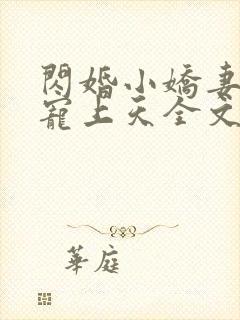 閃婚小嬌妻
寵上天全文
華庭